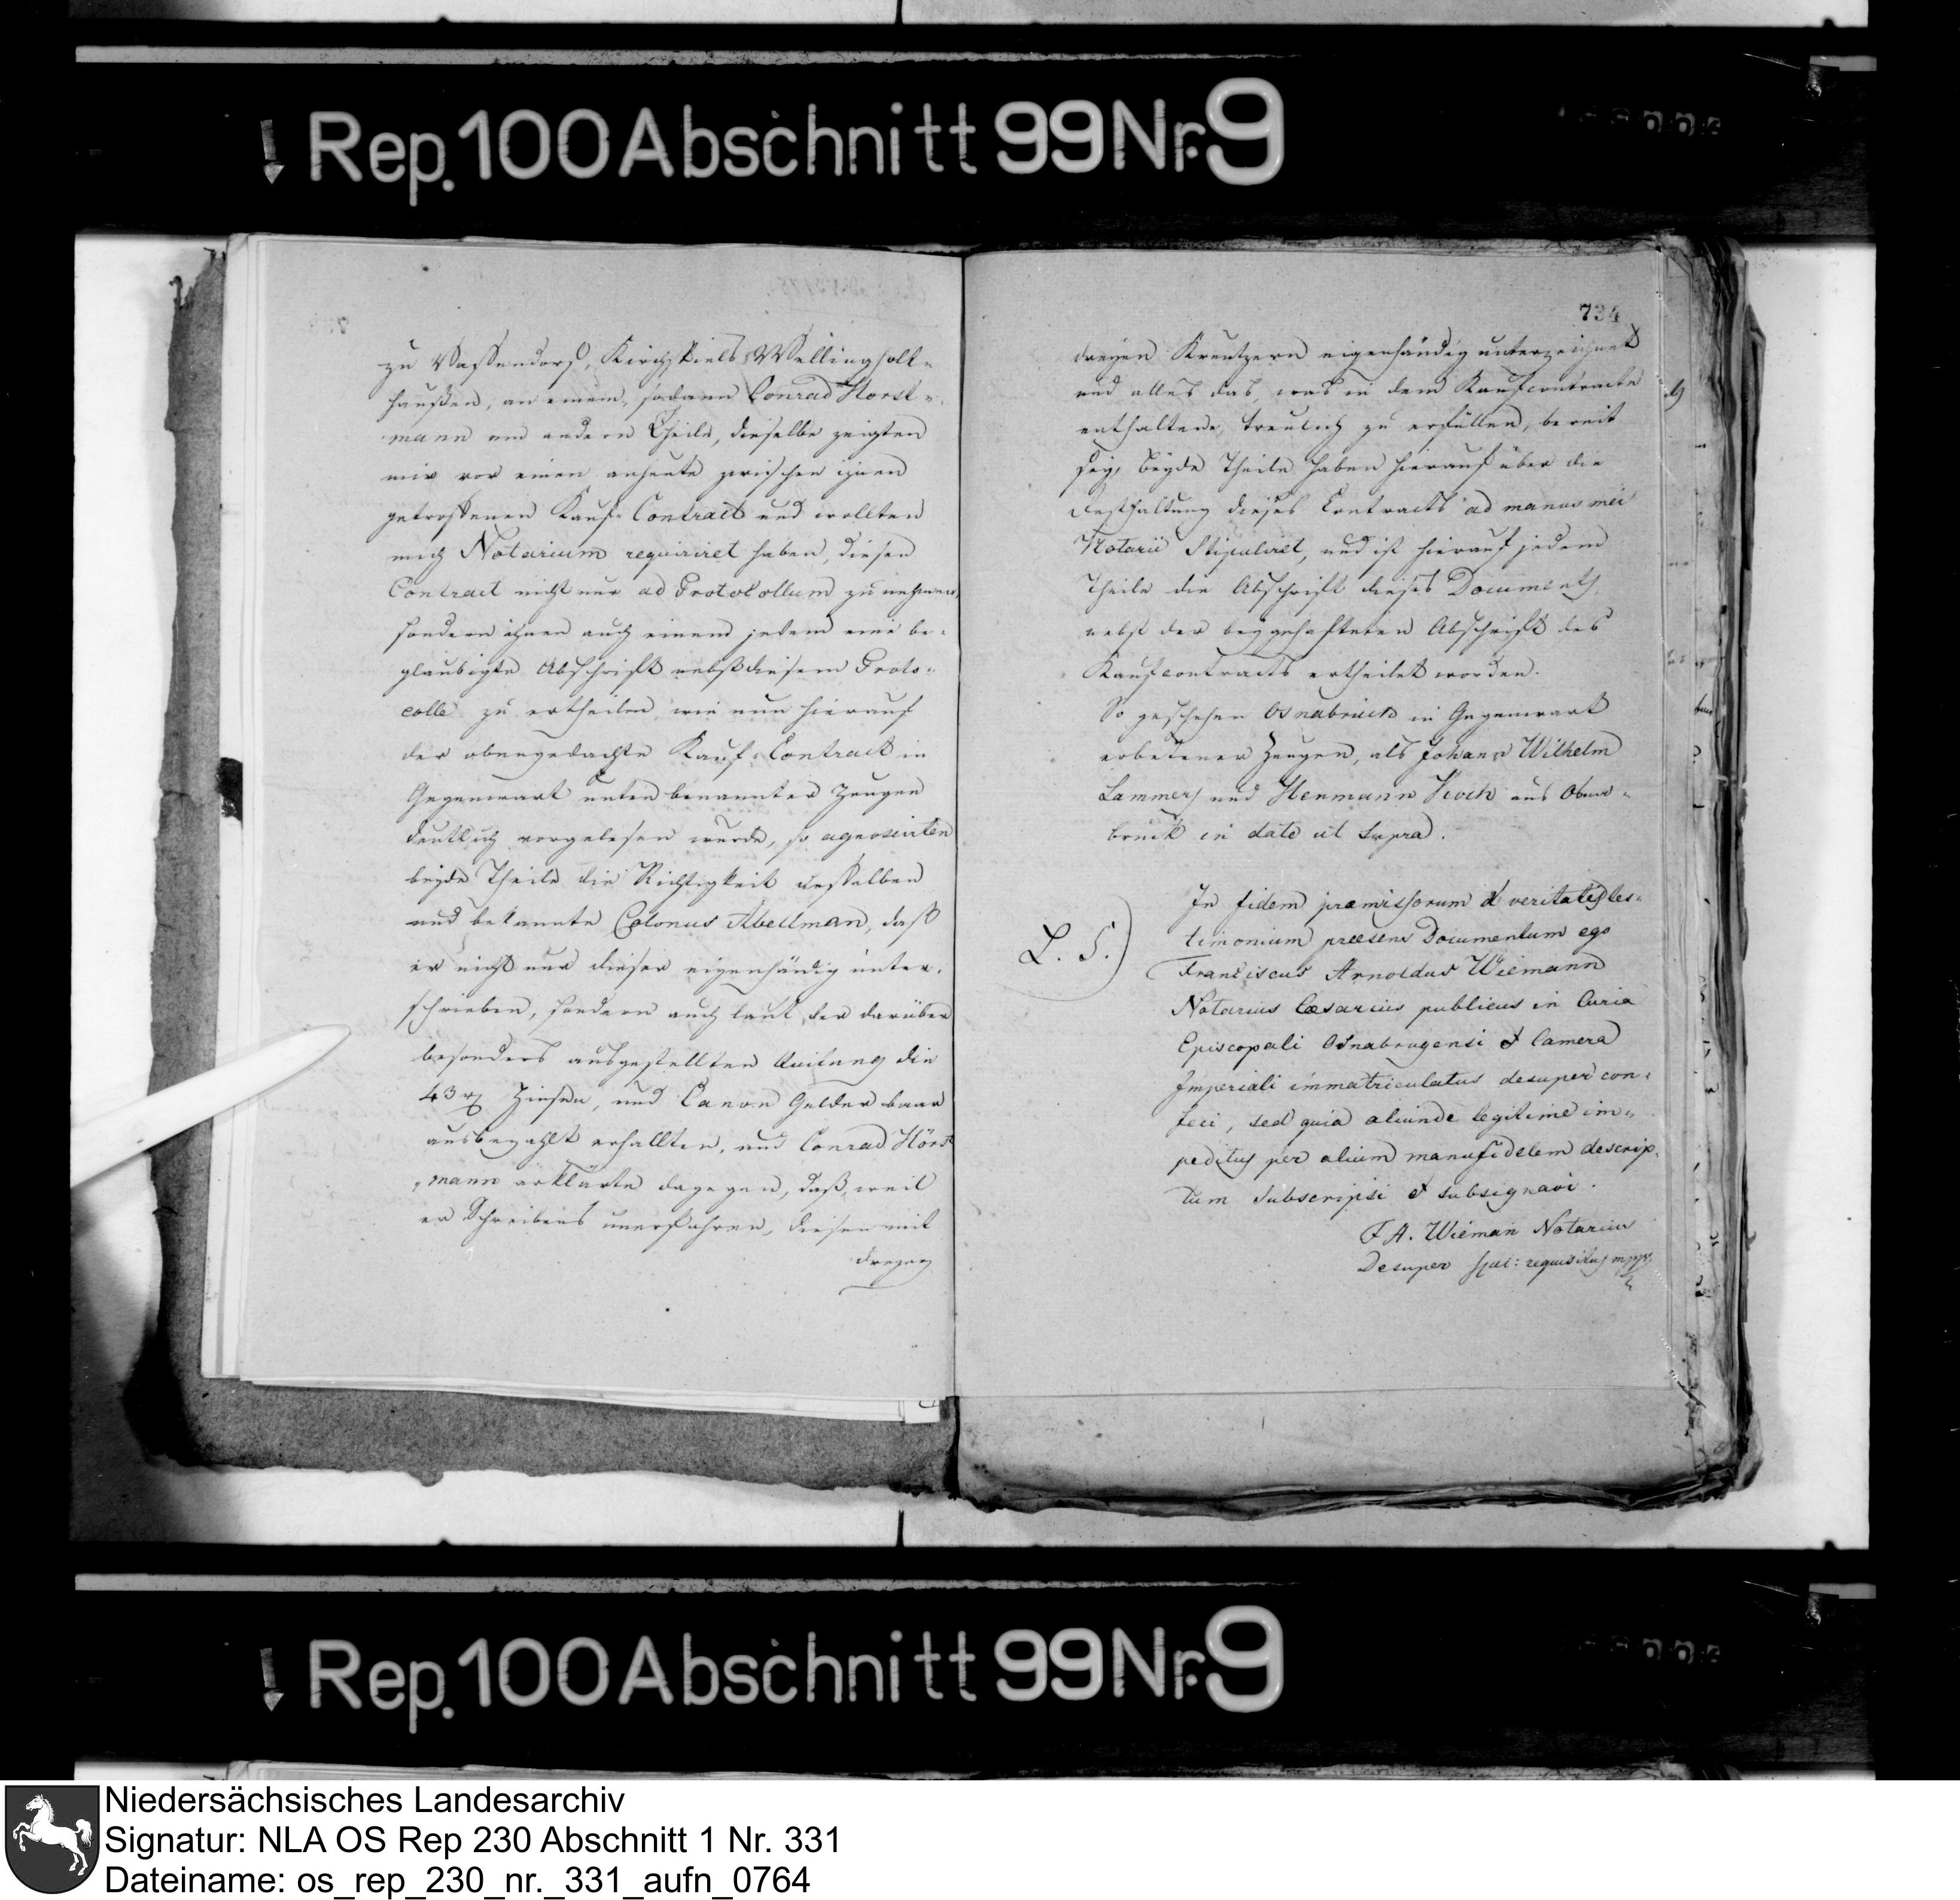 Rep. 100 Abschnitt 99 Nr. 9
zu Vessendorf, Kirchspiels Wellingholt-
haußen, an einem, sodann Conrad Horst-
mann am andern Theile, dieselbe zeigten
mir vor einen anheute zwischen ihnen
getroffenen Kauf-Contract und wollten
mich Notarium requiriret haben, diesen
Contract nicht nur ad Protocollum zu nehmen,
sondern ihnen auch einem jedem eine be-
glaubigte Abschrift nebst diesem Proto-
colle zu ertheilen, wie nun hierauf
der obengedachte Kauf-Contract in
Gegenwart unten benannter Zeugen
deutlich vorgelesen wurde, so agnoscirten
beyde Theile die Richtigkeit desselben
und bekannte Colonus Abellman, daß
er nicht nur dieser eigenhändig unter-
schrieben, sondern auch laut der darüber
besonders ausgestellten Quitung die
43 rt Zinsen, und Canon Gelder baar
ausbezahlt erhallten, und Conrad Hörst
-mann erklärte dagegen, daß, weil
er Schreibens unerfahren, diesen mit
dreyen
734
dreyen Kreutzern eigenhändig unterzeichnet
und alles das, was in dem Kaufcontracte
enthaltene, treulich zu erfüllen, bereit
sey, beyde Theile haben hierauf über die
Festhaltung dieses Contracts ad manus mei
Notarii Stipuliret, und ist hierauf jedem
Theile die Abschrift dieses Documents
nebst der beygehefteten Abschrift des
Kaufcontracts ertheilet worden.
So geschehen Osnabrück in Gegenwart
erbetener Zeugen, als Johann Wilhelm
Lammers und Henmann Kock aus Osna-
brück in dato ut Supra.
L. S.)
In fidem præmissorum et veritatis tes-
timonium præsens Documentum ego
Franciscus Arnoldus Wiemann
Notarius Cæsareus publicus in Curia
Episcopali Osnabrugensi et Camera
Imperiali immatriculatus desuper con-
feci, sed quia aliunde legitime im-
peditus per alium manu fidelem descrip-
tum Subscripsi et subsignavi.
F A. Wieman Notarius
Desuper spec: requisitus mppr.
Rep. 100 Abschnitt 99 Nr. 9
Niedersächsisches Landesarchiv
Signatur: NLA OS Rep 230 Abschnitt 1 Nr. 331
Dateiname: os_rep_230_nr._331_aufn_0764